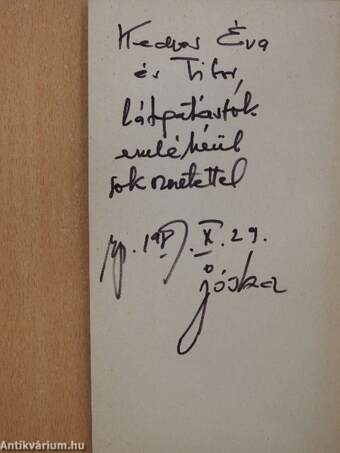 Kedves Éva
és Tibor,
látogatástok
emlékéül
sok szeretettel
X. 29.
Jóska
Antikvárium.hu